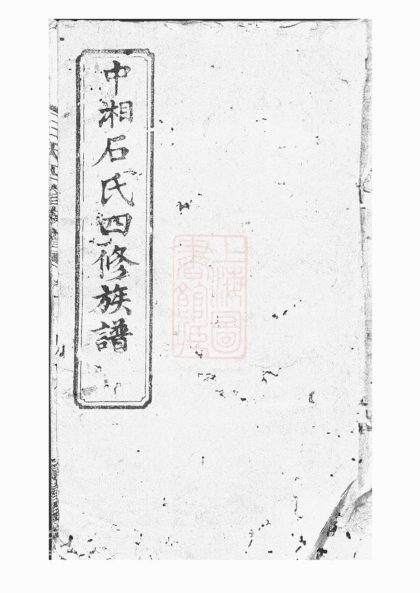 中湘石氏四修族譜
上海圖書館藏